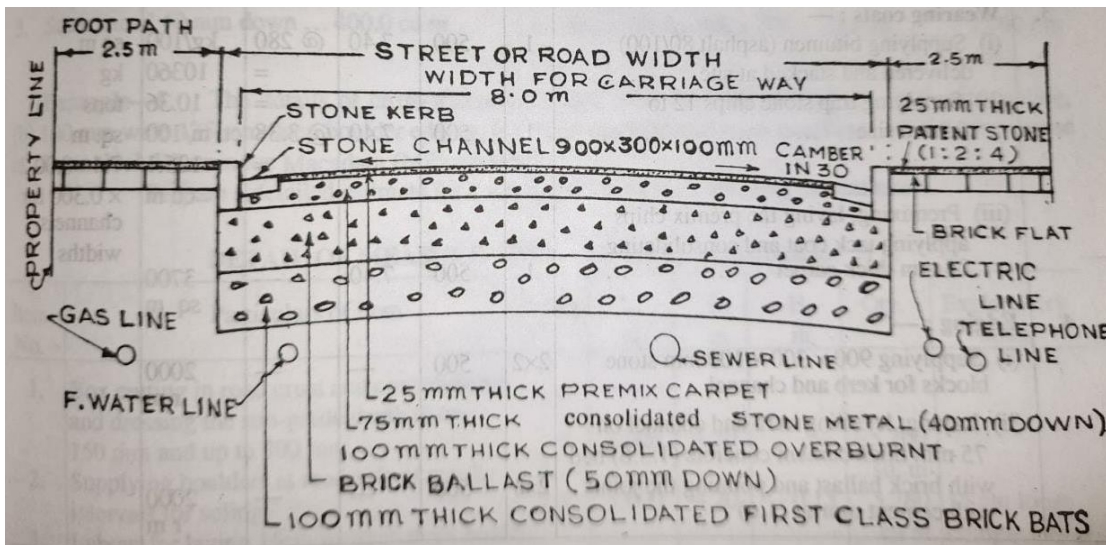 FOOT PATH
2.5m
STREET OR ROAD WIDTH
2.5m
WIDTH FOR CARRIAGE WAY
8.0m
PROPERTY LINE
STONE KERB
25mm THICK
PATENT STONE
(1:2:4)
STONE CHANNEL 900x300x100mm
CAMBER
IN 30
BRICK FLAT
ELECTRIC
LINE
GAS LINE
TELEPHONE
LINE
SEWER LINE
F. WATER LINE
25mm THICK PREMIX CARPET
75mm THICK consolidated STONE METAL (40mm DOWN)
100mm THICK CONSOLIDATED OVERBURNT
BRICK BALLAST (50mm DOWN)
100mm THICK CONSOLIDATED FIRST CLASS BRICK BATS